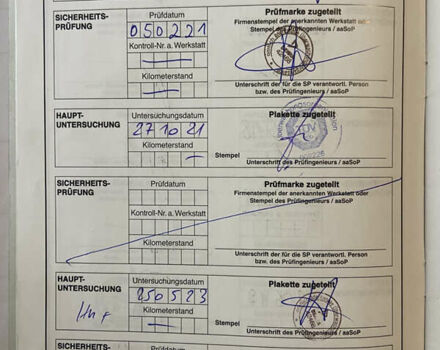 SICHERHEITS-
PRÜFUNG
Prüfdatum
050221
Kontroll-Nr. a. Werkstatt
Kilometerstand
Prüfmarke zugeteilt
Firmenstempel der anerkannten Werkstatt oder
Stempel des Prüfingenieurs / aaSoP
Unterschrift der für die SP verantwortl. Person
bzw. des Prüfingenieurs / aaSoP
HAUPT-
UNTERSUCHUNG
Untersuchungsdatum
271021
Kilometerstand
Plakette zugeteilt
TÜV
Stempel
Unterschrift des Prüfingenieurs / aaSoP
SICHERHEITS-
PRÜFUNG
Prüfdatum
Kontroll-Nr. a. Werkstatt
Kilometerstand
Prüfmarke zugeteilt
Firmenstempel der anerkannten Werkstatt oder
Stempel des Prüfingenieurs / aaSoP
Unterschrift der für die SP verantwortl. Person
bzw. des Prüfingenieurs / aaSoP
HAUPT-
UNTERSUCHUNG
Untersuchungsdatum
250523
Kilometerstand
Plakette zugeteilt
Stempel
Unterschrift des Prüfingenieurs / aaSoP
SICHERHEITS-
Prüfdatum
Prüfmarke zugeteilt